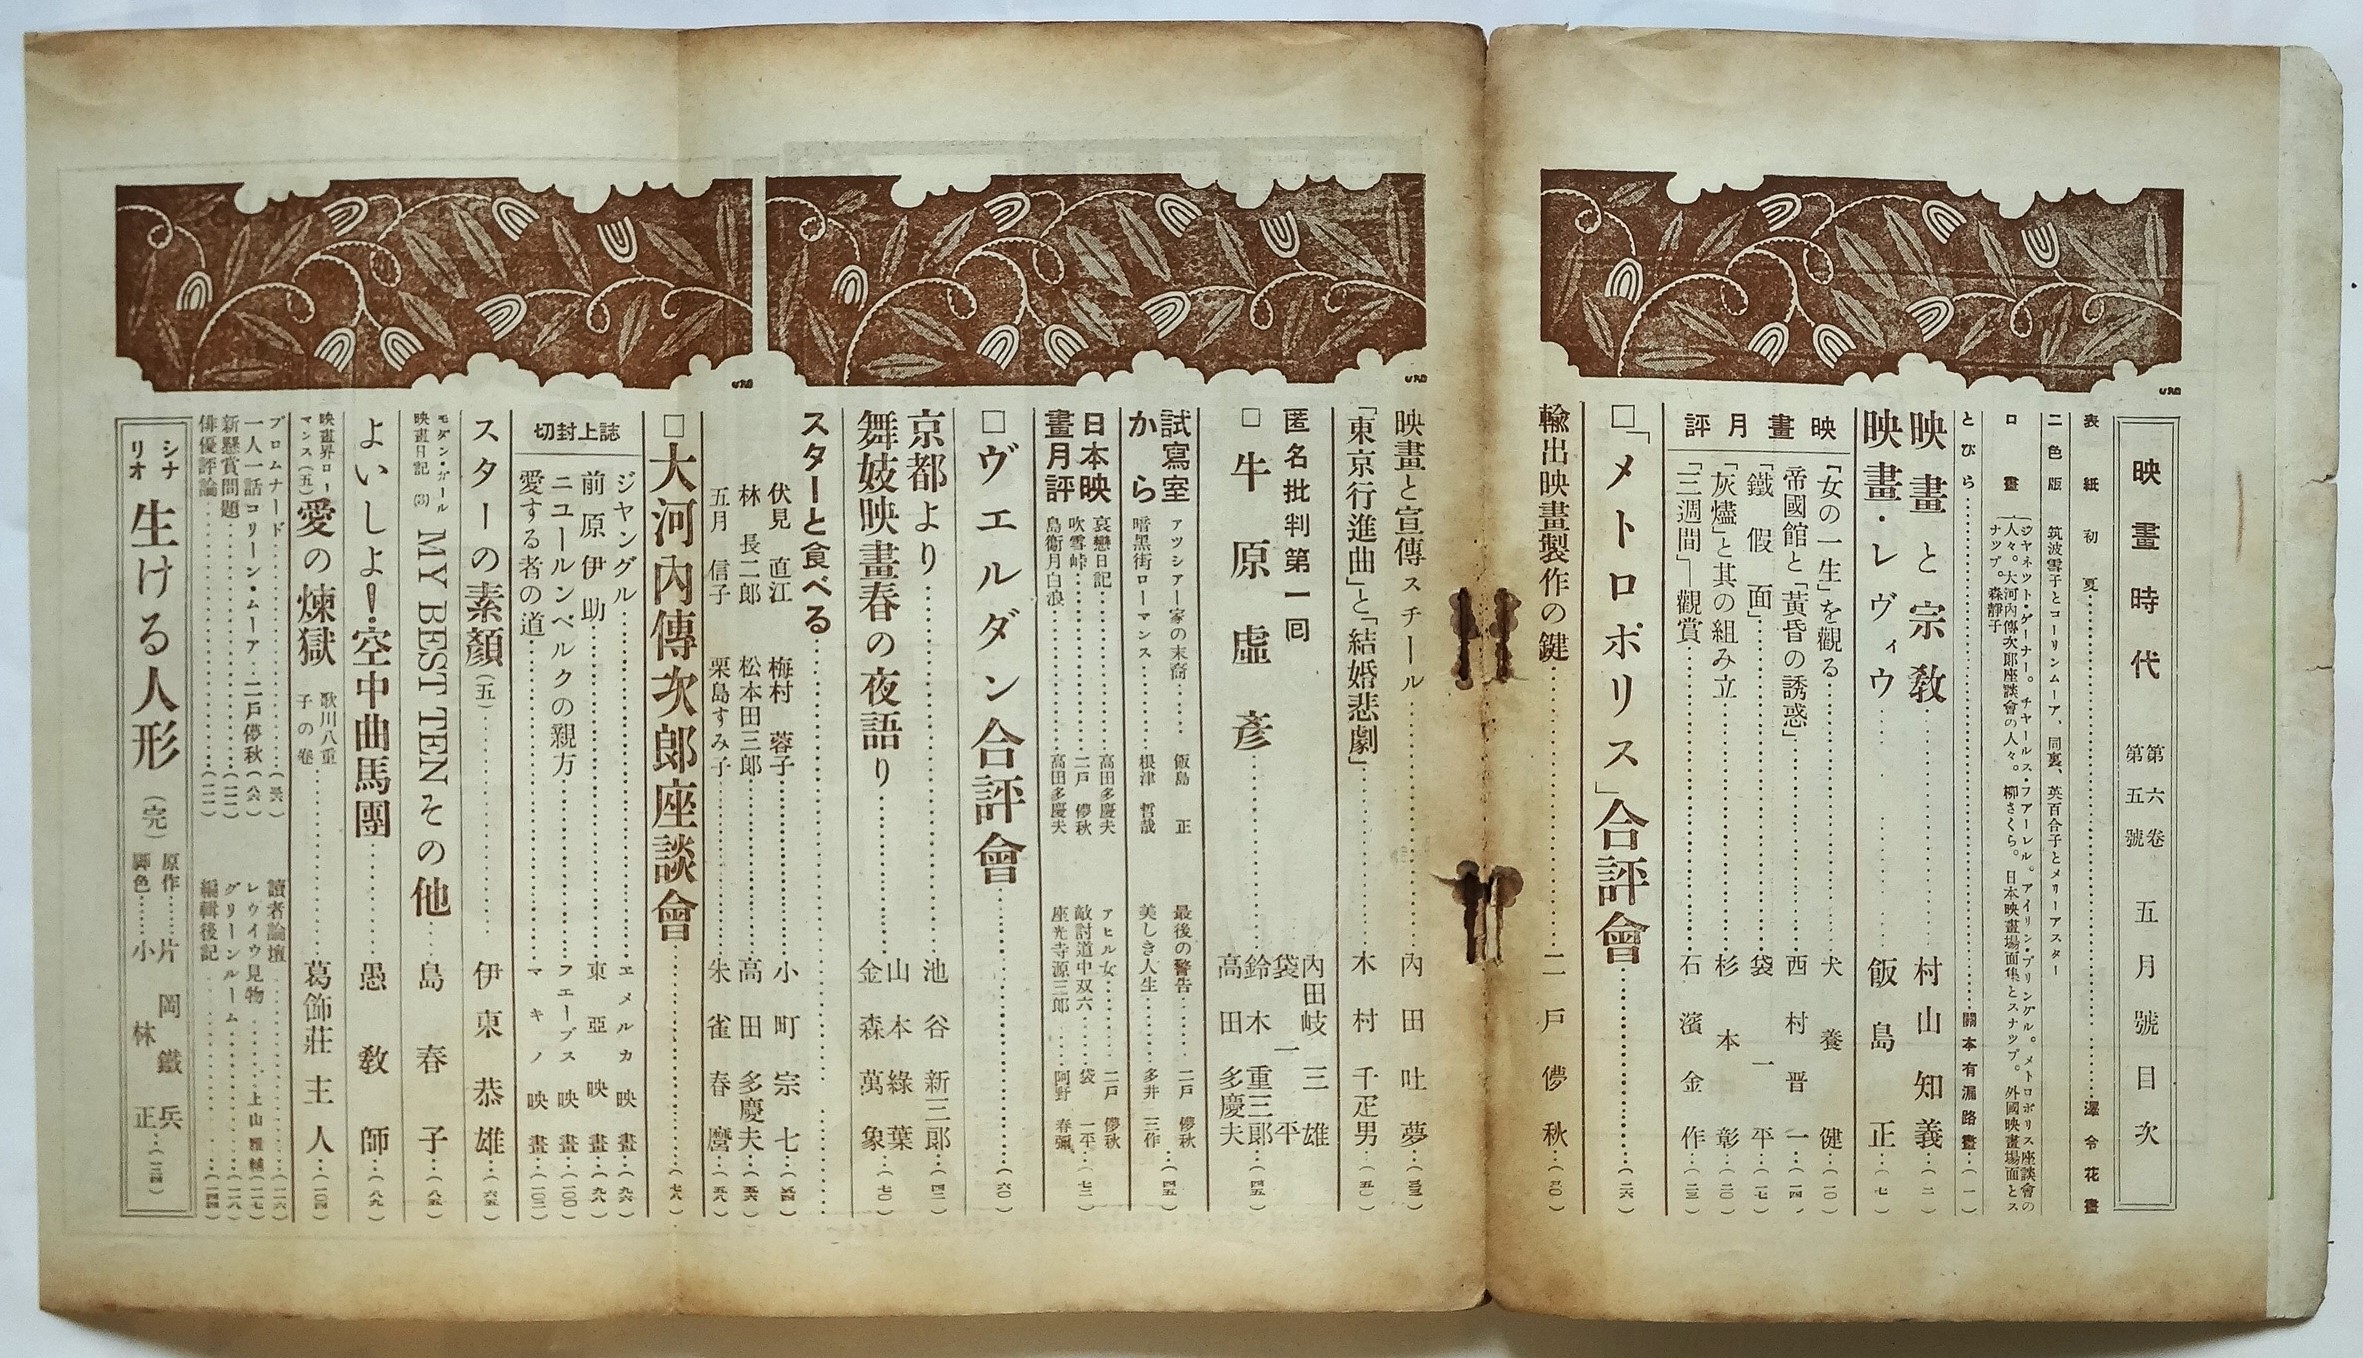 映畫時代 第六卷第五號 五月號目次
表紙 初夏 澤令花畫
二色版 筑波雪子とコーリンムーア、同裏、英百合子とメリーアスター
口畫 ジヤネツト・ゲーナー。チヤールス・フアーレル。アイリン・プリングル。メトロポリス座談會の人々。大河內傳次郎座談會の人々。柳さくら。日本映畫場面集とスナツプ。外國映畫場面とスナツプ。森靜子
とびら 關本有漏路畫 (一)
映畫と宗敎 村山知義 (二)
映畫・レヴィウ 飯島正 (七)
映畫月評
「女の一生」を觀る 犬養健 (一〇)
帝國館と「黃昏の誘惑」 西村晋一 (一四)
「鐵假面」 袋一平 (一七)
「灰燼」と其の組み立 杉本彰 (二〇)
「三週間」―觀賞 石濱金作 (二三)
□「メトロポリス」合評會 (二六)
輸出映畫製作の鍵 二戸儚秋 (三〇)
映畫と宣傳スチール 內田吐夢 (三三)
「東京行進曲」と「結婚悲劇」 木村千疋男 (五〇)
匿名批判第一回
□牛原虛彥
內田岐三雄
袋一平
鈴木重三郎
高田多慶夫 (四五)
試寫室から
アツシアー家の末裔 飯島正
最後の警告 二戸儚秋
暗黑街ローマンス 根津哲哉
美しき人生 多井三作 (四五)
日本映畫月評
哀戀日記 高田多慶夫
アヒル女 二戸儚秋
吹雪峠 二戸儚秋
敵討道中双六 袋一平
島衞月白浪 高田多慶夫
座光寺源三郎 阿野春彌 (七二)
□ヴエルダン合評會 (六〇)
京都より 池谷新三郎 (四二)
舞妓映畫春の夜語り
山本綠葉
金森萬象 (七〇)
スターと食べる
伏見直江 梅村蓉子 小町宗七 (五四)
林長二郎 松本田三郎 高田多慶夫 (五六)
五月信子 栗島すみ子 朱雀春麿 (五八)
□大河內傳次郎座談會 (七八)
誌上封切
ジヤングル エメルカ映畫 (九六)
前原伊助 東亞映畫 (九八)
ニユールンベルクの親方 フエーブス映畫 (一〇〇)
愛する者の道 マキノ映畫 (一〇二)
スターの素顏(五) 伊東恭雄 (六五)
モダン・ガール映畫日記(3) MY BEST TENその他 島春子 (八五)
よいしよ!空中曲馬團 愚敎師 (八九)
映畫界ローマンス(五) 愛の煉獄 歌川八重子の卷 葛飾莊主人 (一〇四)
プロムナード (三六)
一人一話コリーン・ムーア 二戸儚秋 (八六)
新懸賞問題
俳優評論
讀者論壇 (一一六)
レヴイウ見物 上山雅輔 (一一七)
グリーンルーム (一二八)
編輯後記 (一四四)
シナリオ 生ける人形 (完)
原作 片岡鐵兵
脚色 小林正 (一三四)